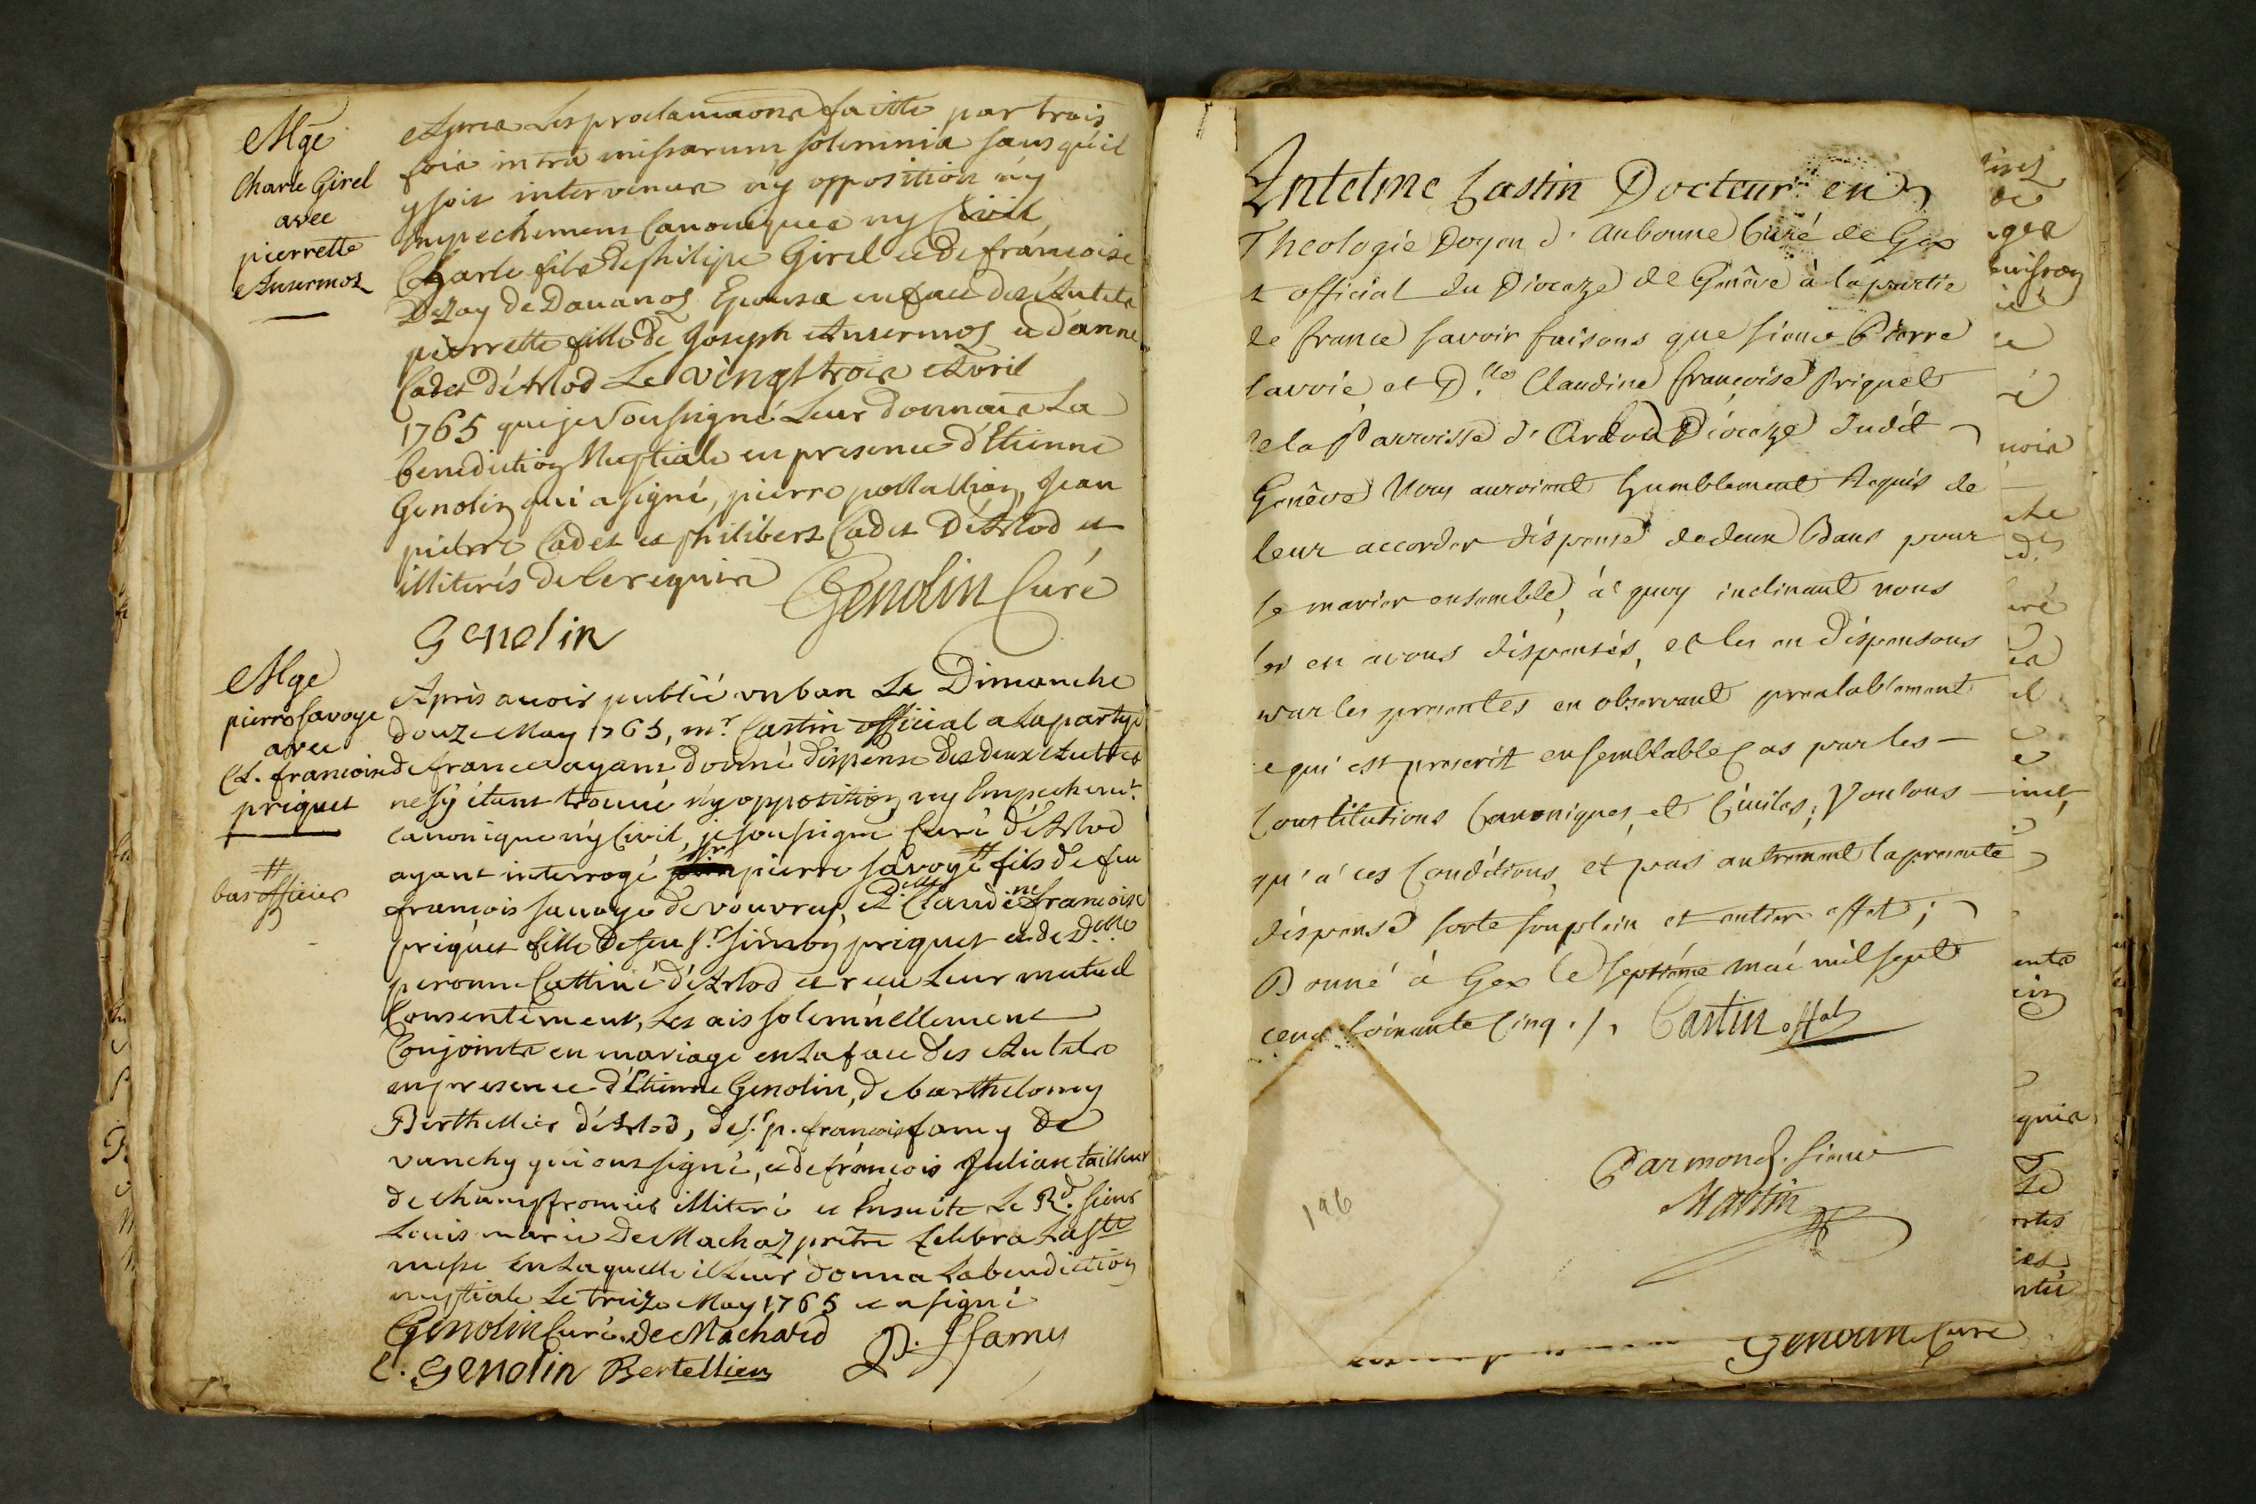 Mge
Charle Girel
avec
pierrette
Ansermoz
Apres Les proclamaons faitte par trois
fois intra missarum solemnia sans qu'il
y soit intervenus ny opposition ny
Empechemens Canoniques ny Civil
Charle fils de philipe Girel et de francoise
De Dauanoz Epousa en face des Autels
pierrette fille de Joseph Ansermoz et d'anne
Cadet d'Arlod Le vingt trois Avril
1765 que je Soussigné Leur donnais La
benediction Nuptiale en presence d'Etienne
Genolin qui a signé, pierre pollallion, Jean
pierre Cadet et philibert Cadet D'Arlod et
illiterés de ce requis Genolin Curé
Genolin
Mge
pierre Savoye
avec
Cl. francoise
priquet
bas officier
Apris avoir publié un ban Le Dimanche
douze May 1765, mr. Castin official a La partye
de france ayant donné dispense des deux Autres
ne s'y étant trouvé n'y opposition ny Empechemt.
canonique n'y Civil, je soussigné Curé d'Arlod
ayant interrogé sr pierre savoye fils de feu
francois savoye de vouvray, et Delle Claudine francoise
priquet fille De feu Sr. Simon priquet et de Delle
peronne Cattiné d'Arlod et reçu Leur mutuel
Consentement, Les ais solemnellement
Conjoints en mariage en La face des Autels
en presence d'Etienne Genolin, de barthelomy
Berthellier d'Arlod, de Sr. p. francois famy de
vanchy qui ont signé, et de francois Julian tailleur
de champfromier illiteré et Ensuite Le Rd. Sieur
Louis marie De Machaz prêtre Celebra La Ste
messe en Laquelle il Leur donna La benediction
nuptiale Le treize May 1765 et a signé
Genolin Curé. De Machard P. ffamy
E. Genolin Bertellier
Antelme Castin Docteur en
Theologie Doyen d'Aubonne Curé de Gex
t official du Diocaze de Genêve à la partie
de france savoir faisons que sieur Pierre
Savoie et D.lle Claudine françoise Priquet
de la Parroisse d'Arlod Diocaze dudit
Genêve Nous auroient humblement Requis de
leur accorder dispense de deux Bans pour
se marier ensemble, à quoy inclinant nous
les en avons dispensés, et les en dispensons
par les presentes en observant prealablement
ce qui est prescrit en semblable Cas par les
Constitutions Canoniques et Civiles; Voulons
qu'a ces Conditions et pas autrement la presente
dispense sorte son plein et entier effet;
Donné à Gex le septième mai mil sept
cent soixante Cinq ./. Castin offal
Par mond. sieur
Martin
196
Genolin Curé